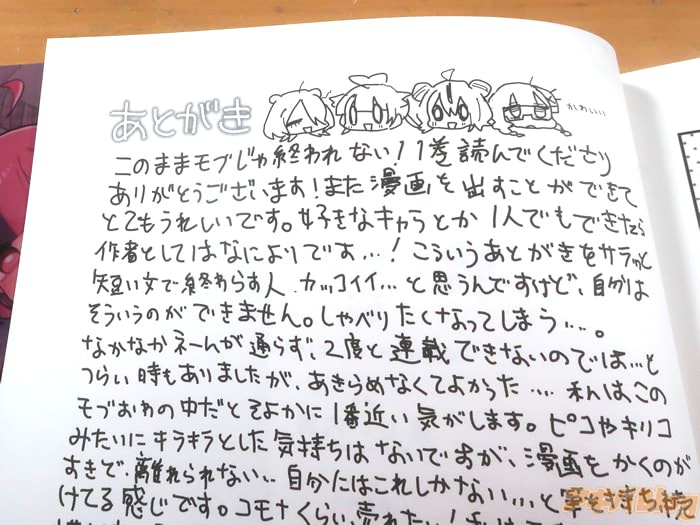 あとがき
かわいい…
このままモブじゃ終われない！1巻読んでくださり
ありがとうございます！また漫画を出すことができて
とてもうれしいです。好きなキャラとか1人でもできたら
作者としてはなによりです…！こういうあとがきをサラッと
短い文で終わらす人、カッコイイ…と思うんですけど、自分は
そういうのができません。しゃべりたくなってしまう…。
なかなかネームが通らず、2度と連載できないのでは…と
つらい時もありましたが、あきらめなくてよかった…。私はこの
モブおわの中だとそよかに1番近い気がします。ピコやキリコ
みたいにキラキラとした気持ちはないですが、漫画をかくのが
すきで、離れられない…自分にはこれしかない…と
けてる感じです。コモナくらい売れたい！